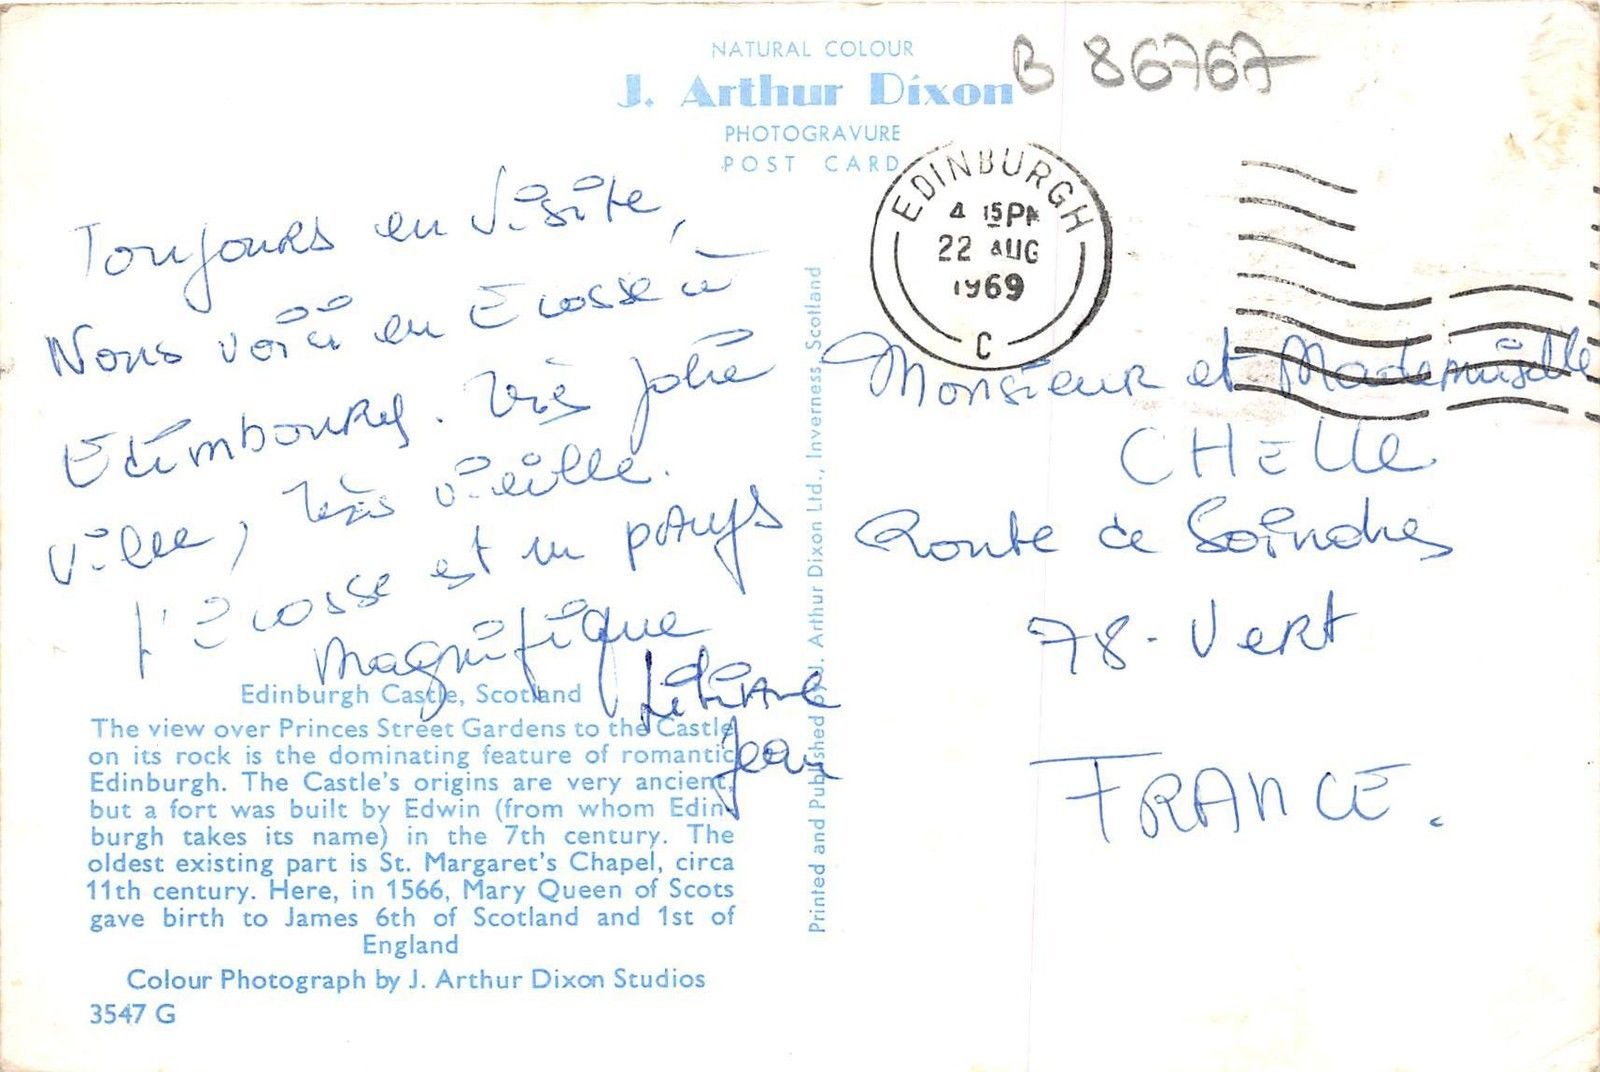 NATURAL COLOUR
J. Arthur Dixon
PHOTOGRAVURE
POST CARD
B 86767
EDINBURGH
4 15 PM
22 AUG
1969
C
Toujours en visite,
Nous voici en Ecosse à
Edimbourg. Très jolie
ville, très vieille.
l'Ecosse est un pays
magnifique
Liliane
Jean
Monsieur et Mademoiselle
CHELLE
Route de Soindres
78 - Vert
FRANCE.
Edinburgh Castle, Scotland
The view over Princes Street Gardens to the Castle
on its rock is the dominating feature of romantic
Edinburgh. The Castle's origins are very ancient,
but a fort was built by Edwin (from whom Edin-
burgh takes its name) in the 7th century. The
oldest existing part is St. Margaret's Chapel, circa
11th century. Here, in 1566, Mary Queen of Scots
gave birth to James 6th of Scotland and 1st of
England
Colour Photograph by J. Arthur Dixon Studios
3547 G
Printed and Published by J. Arthur Dixon Ltd., Inverness, Scotland